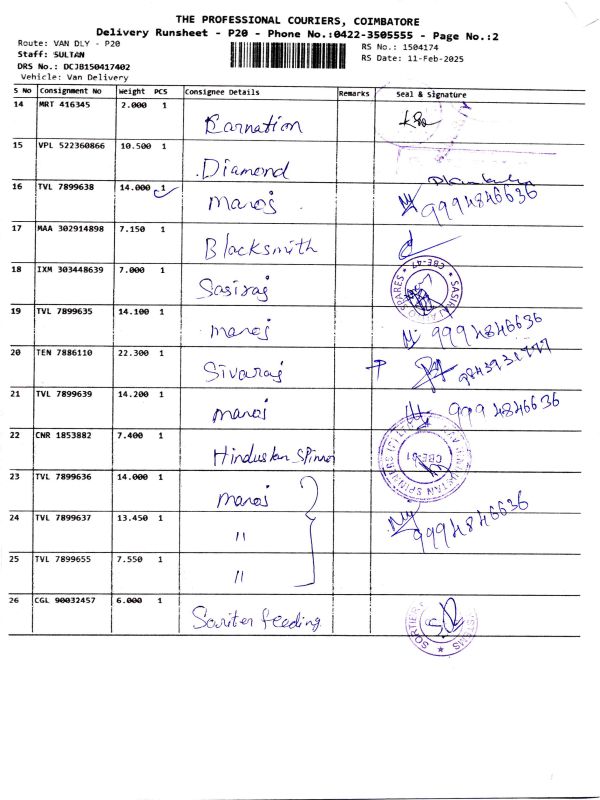 THE PROFESSIONAL COURIERS, COIMBATORE
Delivery Runsheet - P20 - Phone No.:0422-3505555 - Page No.:2
Route: VAN DLY - P20
RS No.: 1504174
Staff: SULTAN
RS Date: 11-Feb-2025
DRS No.: DCJB150417402
Vehicle: Van Delivery
S No Consignment No Weight PCS Consignee Details Remarks Seal & Signature
14 MRT 416345 2.000 1 Carnation
15 VPL 522360866 10.500 1 Diamond
16 TVL 7899638 14.000 1 Manoj 9994846636
17 MAA 302914898 7.150 1 Blacksmith
18 IXM 303448639 7.000 1 Sasiraj SASIRAJ SPARES CBE-47
19 TVL 7899635 14.100 1 manoj 9994846636
20 TEN 7886110 22.300 1 Sivaraj
21 TVL 7899639 14.200 1 manoj 9994846636
22 CNR 1853882 7.400 1 Hindustan Spinner HINDUSTAN SPINNERS
23 TVL 7899636 14.000 1 manoj
24 TVL 7899637 13.450 1 " 9994846636
25 TVL 7899655 7.550 1 "
26 CGL 90032457 6.000 1 Soriter feeding